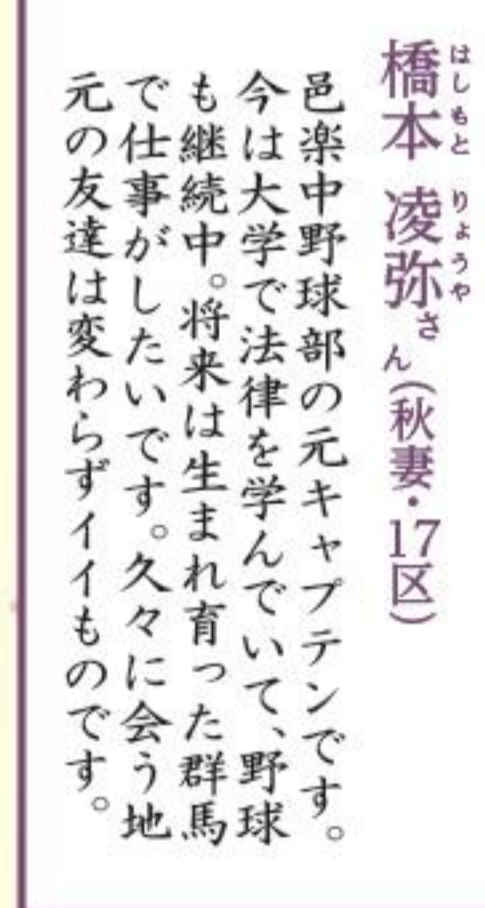 橋本 凌弥さん（秋妻・17区）
はしもと りょうや
邑楽中野球部の元キャプテンです。
今は大学で法律を学んでいて、野球
も継続中。将来は生まれ育った群馬
で仕事がしたいです。久々に会う地
元の友達は変わらずイイものです。